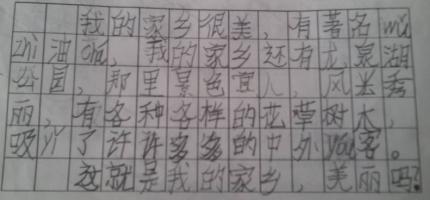 我的家乡很美，有著名mù
zhi油chǎ，我的家乡还有龙泉湖
公园，那里景色宜人，风光秀
丽，有各种各样的花草树木，
吸yǐn了许许多多的中外yóu客。
这就是我的家乡，美丽吗？